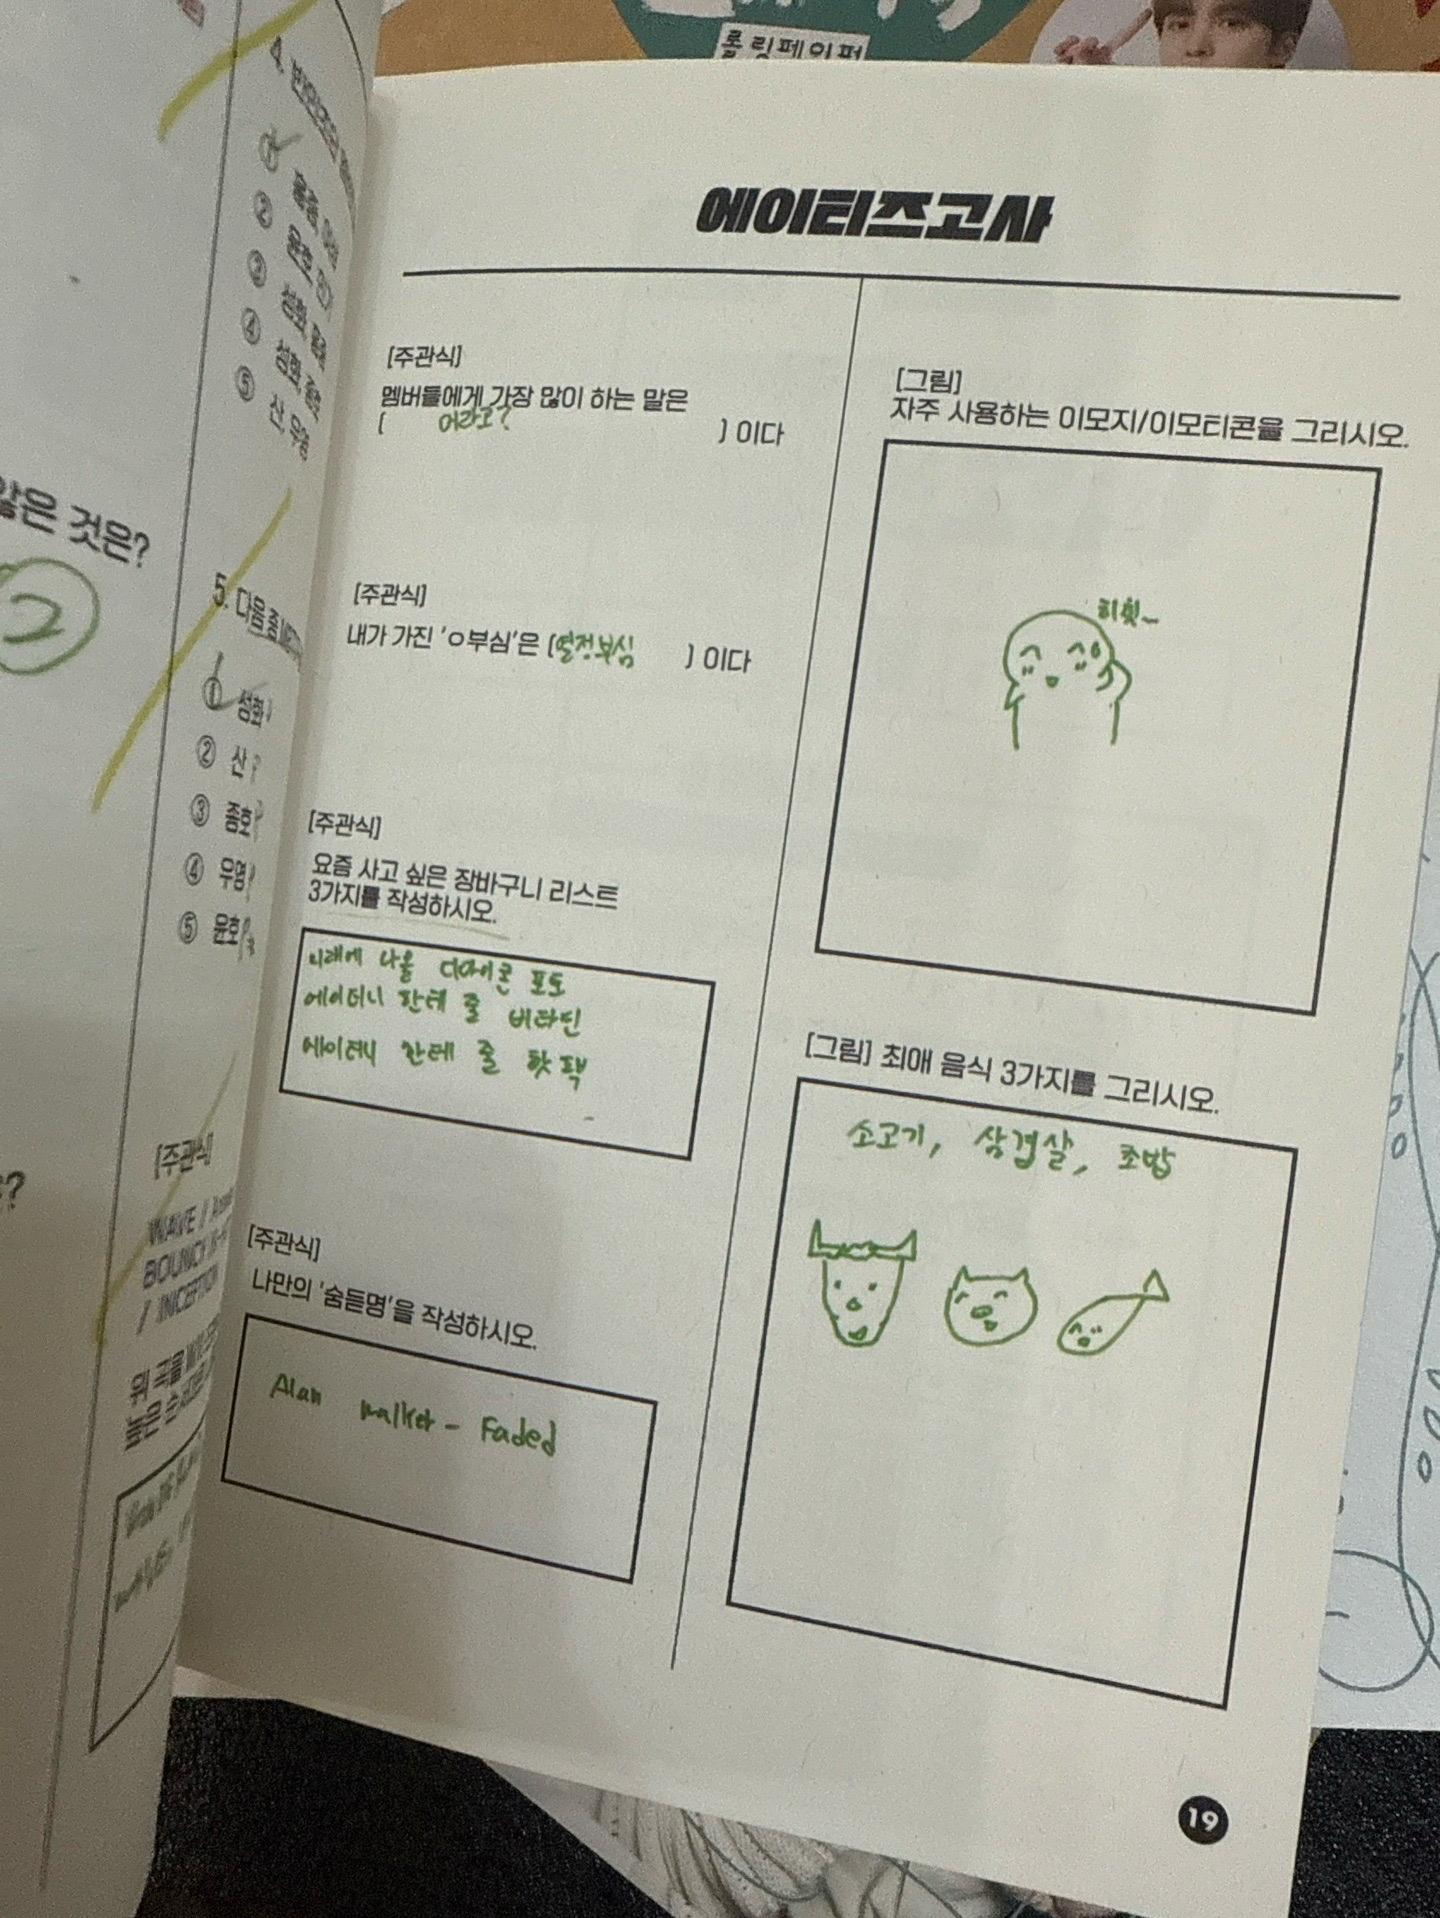 롤링페이퍼
에이티즈고사
[주관식]
멤버들에게 가장 많이 하는 말은
( 어라고? ) 이다
[주관식]
내가 가진 'ㅇ부심'은 (열정부심 ) 이다
[주관식]
요즘 사고 싶은 장바구니 리스트
3가지를 작성하시오.
미래에 나올 디아이콘 포토
에이티니 한테 줄 비타민
에이티니 한테 줄 핫팩
[주관식]
나만의 '숨듣명'을 작성하시오.
Alan walker - Faded
[그림]
자주 사용하는 이모지/이모티콘을 그리시오.
히힛~
[그림] 최애 음식 3가지를 그리시오.
소고기, 삼겹살, 초밥
19
않은 것은?
2
4.
①
② 윤호
③ 성화
④ 성화
⑤ 산, 우영
5. 다음 중
① 성화
② 산
③ 종호
④ 우영
⑤ 윤호
[주관식]
WAVE //
BOUNCY
/ INCEPTION
위 곡을
높은 순